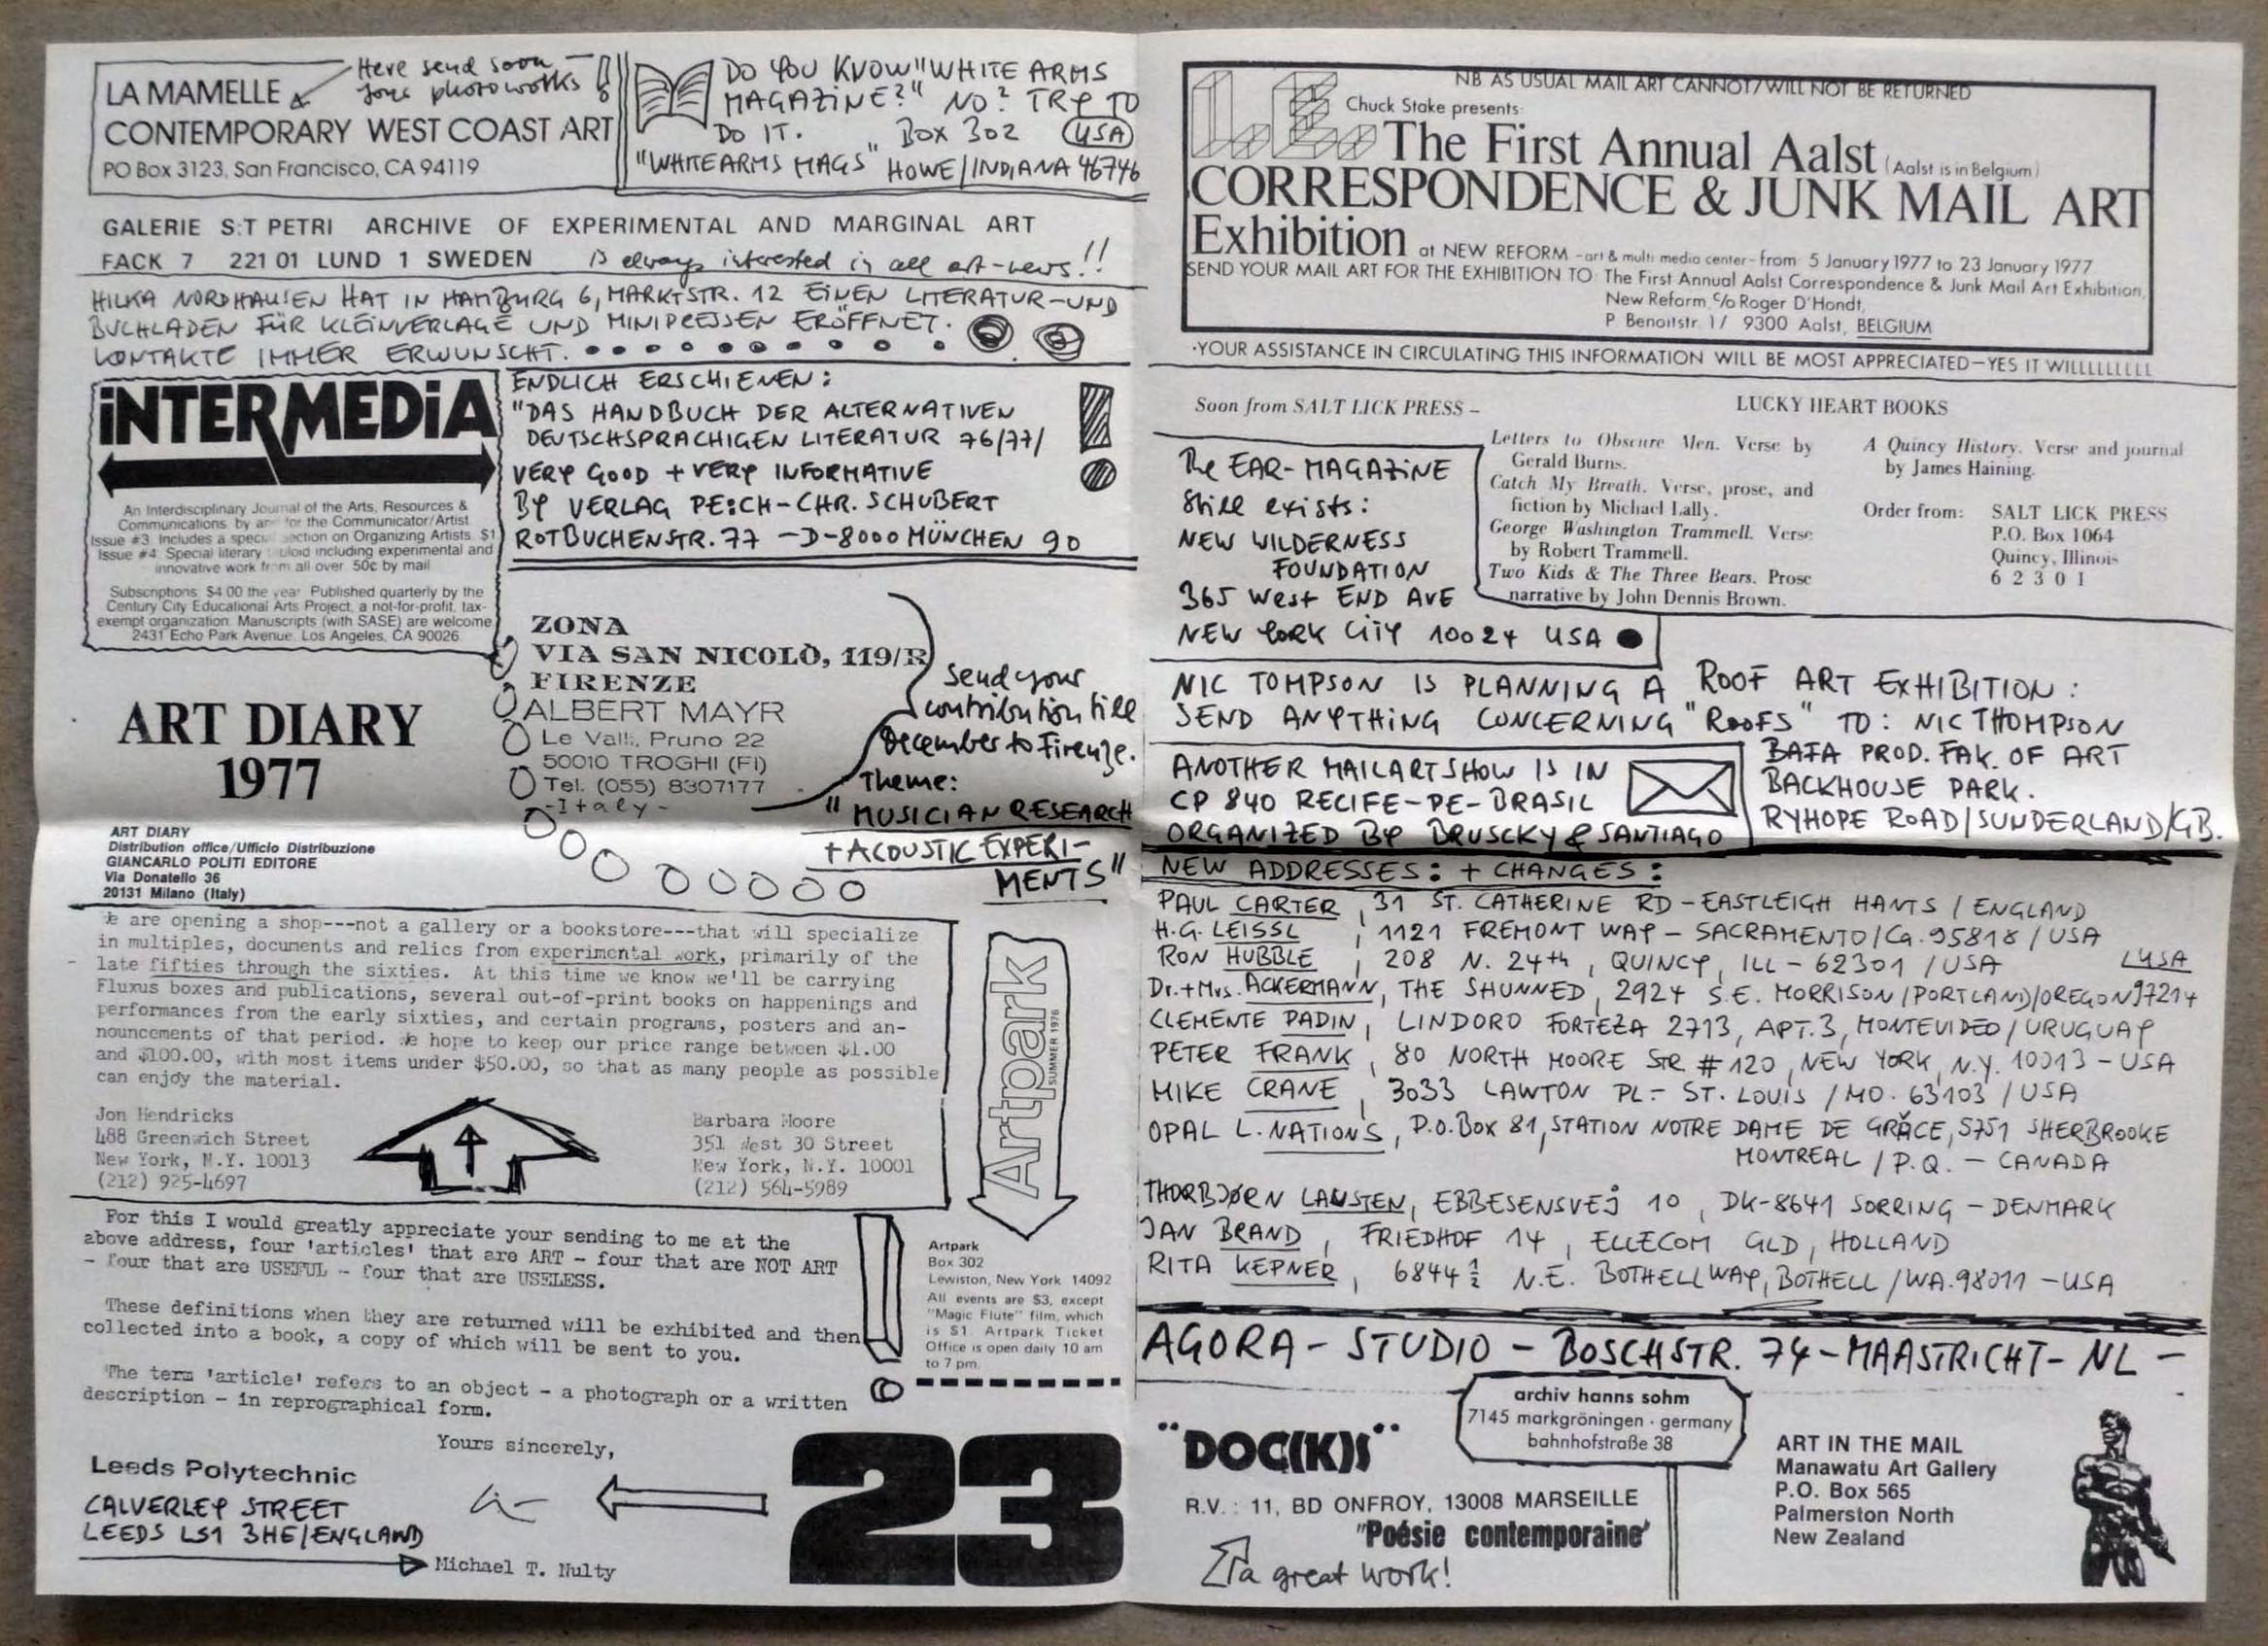 LA MAMELLE
CONTEMPORARY WEST COAST ART
PO Box 3123, San Francisco, CA 94119
Here send soon
your photoworks!
DO YOU KNOW "WHITE ARMS
MAGAZINE?" NO? TRY TO
DO IT. BOX 302 USA
"WHITEARMS MAGS" HOWE/INDIANA 46746
GALERIE S:T PETRI ARCHIVE OF EXPERIMENTAL AND MARGINAL ART
FACK 7 221 01 LUND 1 SWEDEN is always interested in all art-news!!
HILKA NORDHAUSEN HAT IN HAMBURG 6, MARKTSTR. 12 EINEN LITERATUR-UND
BUCHLADEN FÜR KLEINVERLAGE UND MINIPRESSEN ERÖFFNET.
KONTAKTE IMMER ERWUNSCHT.
iNTERMEDiA
An Interdisciplinary Journal of the Arts, Resources &
Communications, by and for the Communicator/Artist
Issue #3 Includes a special section on Organizing Artists. $1
Issue #4 Special literary tabloid including experimental and
innovative work from all over. 50c by mail
Subscriptions: $4.00 the year. Published quarterly by the
Century City Educational Arts Project, a not-for-profit, tax-
exempt organization. Manuscripts (with SASE) are welcome
2431 Echo Park Avenue, Los Angeles, CA 90026
ENDLICH ERSCHIENEN:
"DAS HANDBUCH DER ALTERNATIVEN
DEUTSCHSPRACHIGEN LITERATUR 76/77/
VERY GOOD + VERY INFORMATIVE
BY VERLAG PE:CH-CHR. SCHUBERT
ROTBUCHENSTR. 77 -D-8000 MÜNCHEN 90
ZONA
VIA SAN NICOLÒ, 119/R
FIRENZE
ALBERT MAYR
Le Valli, Pruno 22
50010 TROGHI (FI)
Tel. (055) 8307177
-Italy-
send your
contribution till
December to Firenze.
Theme:
"MUSICIAN RESEARCH
+ ACOUSTIC EXPERI-
MENTS"
ART DIARY
1977
ART DIARY
Distribution office/Ufficio Distribuzione
GIANCARLO POLITI EDITORE
Via Donatello 36
20131 Milano (Italy)
We are opening a shop---not a gallery or a bookstore---that will specialize
in multiples, documents and relics from experimental work, primarily of the
late fifties through the sixties. At this time we know we'll be carrying
Fluxus boxes and publications, several out-of-print books on happenings and
performances from the early sixties, and certain programs, posters and an-
nouncements of that period. We hope to keep our price range between $1.00
and $100.00, with most items under $50.00, so that as many people as possible
can enjoy the material.
Jon Hendricks
488 Greenwich Street
New York, N.Y. 10013
(212) 925-4697
Barbara Moore
351 West 30 Street
New York, N.Y. 10001
(212) 564-5989
Artpark
SUMMER 1976
Artpark
Box 302
Lewiston, New York 14092
All events are $3, except
"Magic Flute" film, which
is $1. Artpark Ticket
Office is open daily 10 am
to 7 pm.
For this I would greatly appreciate your sending to me at the
above address, four 'articles' that are ART - four that are NOT ART
- four that are USEFUL - four that are USELESS.
These definitions when they are returned will be exhibited and then
collected into a book, a copy of which will be sent to you.
The term 'article' refers to an object - a photograph or a written
description - in reprographical form.
Yours sincerely,
Leeds Polytechnic
CALVERLEY STREET
LEEDS LS1 3HE/ENGLAND
Michael T. Nulty
23
NB AS USUAL MAIL ART CANNOT/WILL NOT BE RETURNED
I.E.
Chuck Stake presents:
The First Annual Aalst (Aalst is in Belgium)
CORRESPONDENCE & JUNK MAIL ART
Exhibition at NEW REFORM -art & multi media center- from 5 January 1977 to 23 January 1977
SEND YOUR MAIL ART FOR THE EXHIBITION TO: The First Annual Aalst Correspondence & Junk Mail Art Exhibition,
New Reform, c/o Roger D'Hondt,
P. Benoitstr. 1/ 9300 Aalst, BELGIUM
·YOUR ASSISTANCE IN CIRCULATING THIS INFORMATION WILL BE MOST APPRECIATED-YES IT WILLLLLLLLL
Soon from SALT LICK PRESS -
LUCKY HEART BOOKS
Letters to Obscure Men. Verse by
Gerald Burns.
Catch My Breath. Verse, prose, and
fiction by Michael Lally.
George Washington Trammell. Verse
by Robert Trammell.
Two Kids & The Three Bears. Prose
narrative by John Dennis Brown.
A Quincy History. Verse and journal
by James Haining.
Order from: SALT LICK PRESS
P.O. Box 1064
Quincy, Illinois
6 2 3 0 1
The EAR-MAGAZINE
still exists:
NEW WILDERNESS
FOUNDATION
365 West END AVE
NEW YORK CITY 10024 USA
NIC TOMPSON IS PLANNING A ROOF ART EXHIBITION:
SEND ANYTHING CONCERNING "ROOFS" TO: NIC THOMPSON
BAFA PROD. FAK. OF ART
BACKHOUSE PARK.
RYHOPE ROAD/SUNDERLAND/GB.
ANOTHER MAILARTSHOW IS IN
CP 840 RECIFE-PE-BRASIL
ORGANIZED BY BRUSCKY & SANTIAGO
NEW ADDRESSES: + CHANGES:
PAUL CARTER, 31 ST. CATHERINE RD - EASTLEIGH HANTS / ENGLAND
H.G. LEISSL, 1121 FREMONT WAY - SACRAMENTO/Ca. 95818 / USA
RON HUBBLE, 208 N. 24th, QUINCY, ILL - 62301 / USA
Dr.+Mrs. ACKERMANN, THE SHUNNED, 2924 S.E. MORRISON/PORTLAND/OREGON 97214 USA
CLEMENTE PADIN, LINDORO FORTEZA 2713, APT.3, MONTEVIDEO/URUGUAY
PETER FRANK, 80 NORTH MOORE STR #120, NEW YORK, N.Y. 10013 - USA
MIKE CRANE, 3033 LAWTON PL - ST. LOUIS / MO. 63103 / USA
OPAL L. NATIONS, P.O. Box 81, STATION NOTRE DAME DE GRÂCE, 5751 SHERBROOKE
MONTREAL / P.Q. - CANADA
THORBJØRN LAUSTEN, EBBESENSVEJ 10, DK-8641 SORRING - DENMARK
JAN BRAND, FRIEDHOF 14, ELLECOM GLD, HOLLAND
RITA KEPNER, 6844 ½ N.E. BOTHELL WAY, BOTHELL / WA. 98011 - USA
AGORA - STUDIO - BOSCHSTR. 74 - MAASTRICHT - NL -
archiv hanns sohm
7145 markgröningen · germany
bahnhofstraße 38
"DOC(K)S"
R.V. : 11, BD ONFROY, 13008 MARSEILLE
"Poésie contemporaine"
a great work!
ART IN THE MAIL
Manawatu Art Gallery
P.O. Box 565
Palmerston North
New Zealand